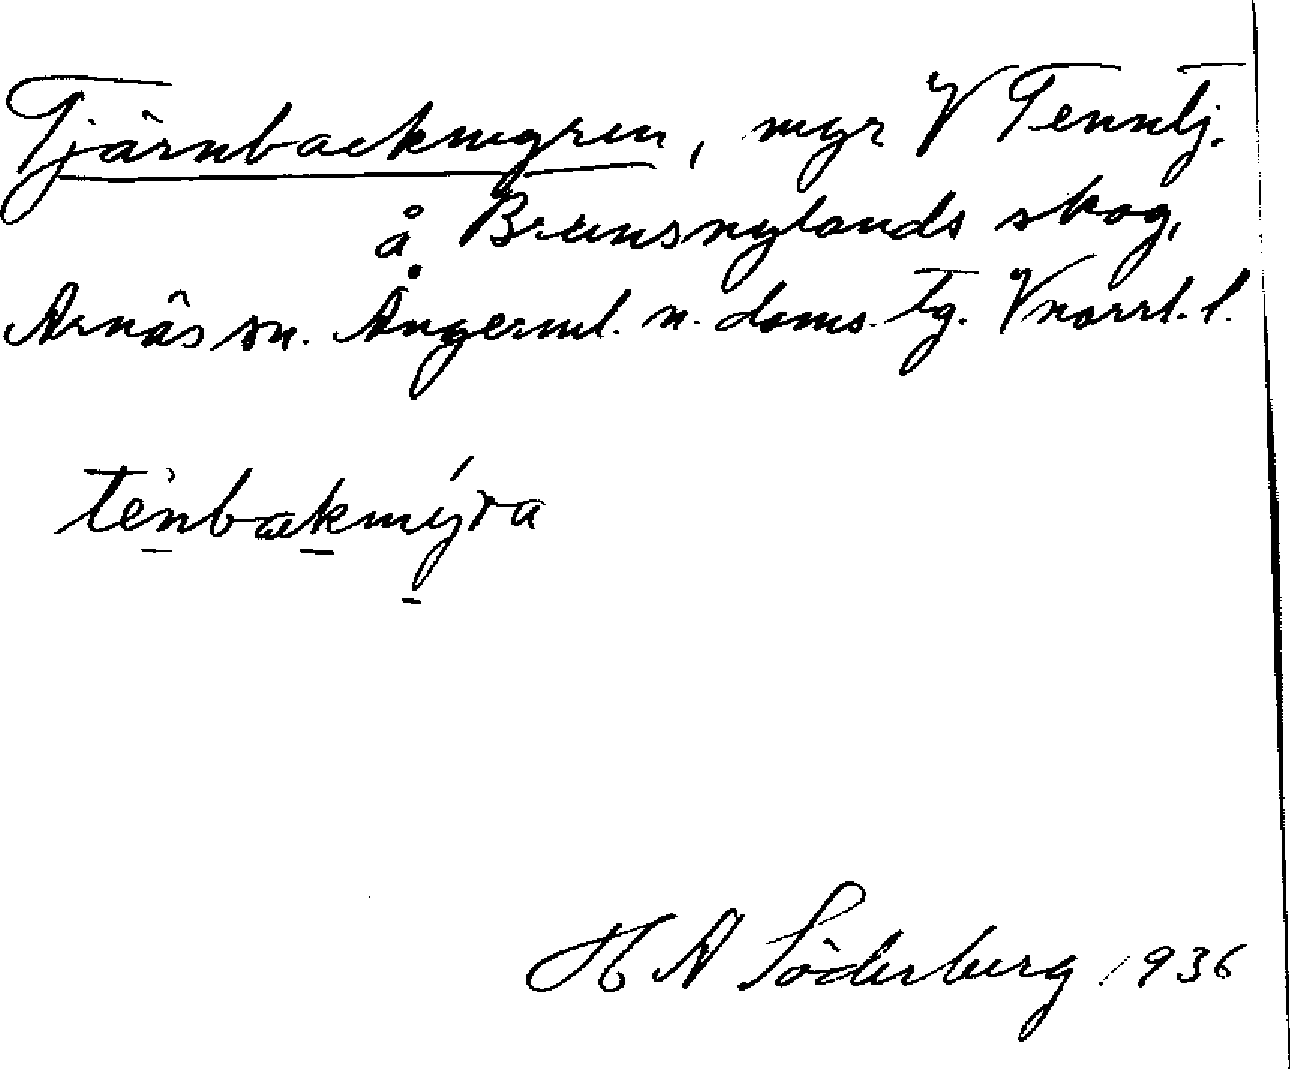 Tjärnbackmyren, myr V Tenntj.
å Brunsnylands skog,
Arnäs sn. Ångerml. n. doms. tg. Vnorrl. l.
tènbakmýra
H A Söderberg 1936